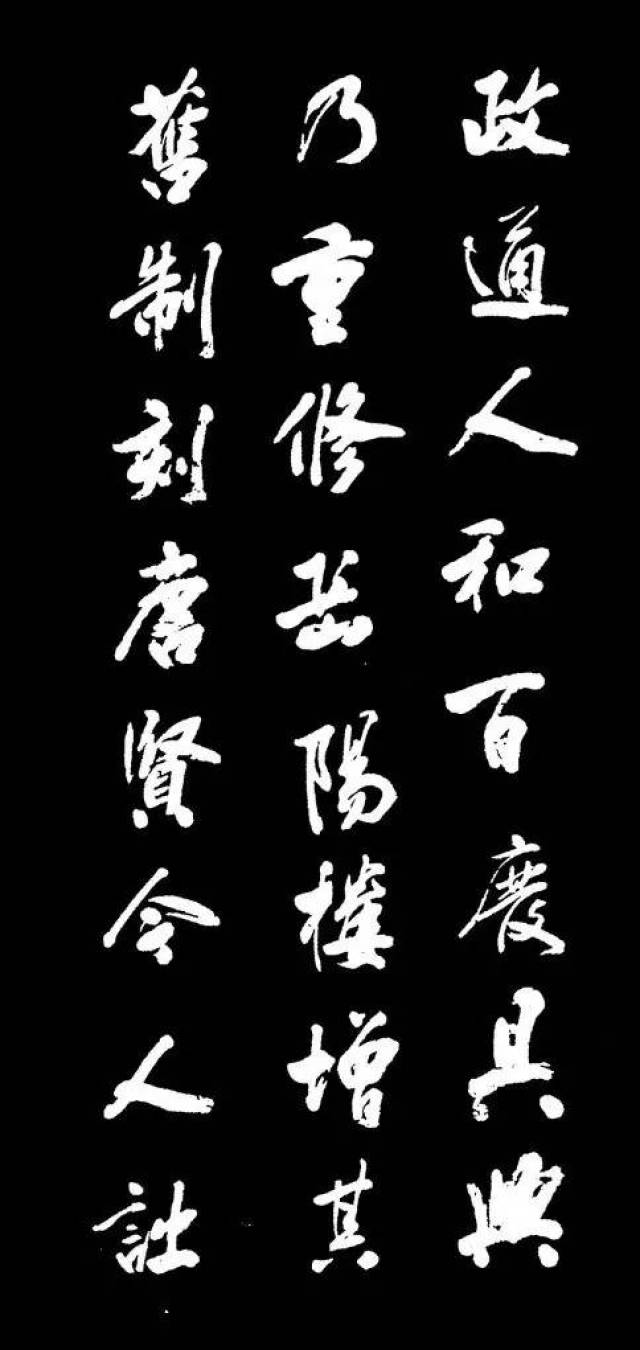 政通人和百廢具興
乃重修岳陽樓增其
舊制刻唐賢今人詩